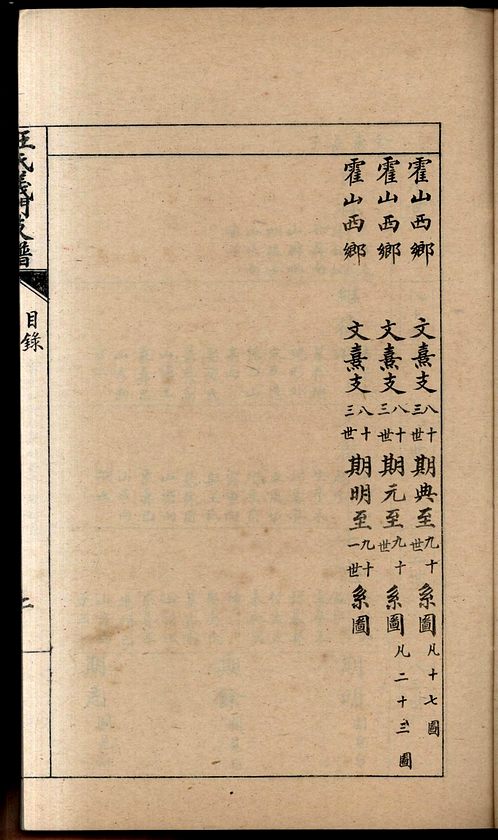 霍山西鄉 文熹支八十三世期典至九十世系圖凡十七圖
霍山西鄉 文熹支八十三世期元至九十世系圖凡二十三圖
霍山西鄉 文熹支八十三世期明至九十一世系圖
汪氏義門支譜 目錄